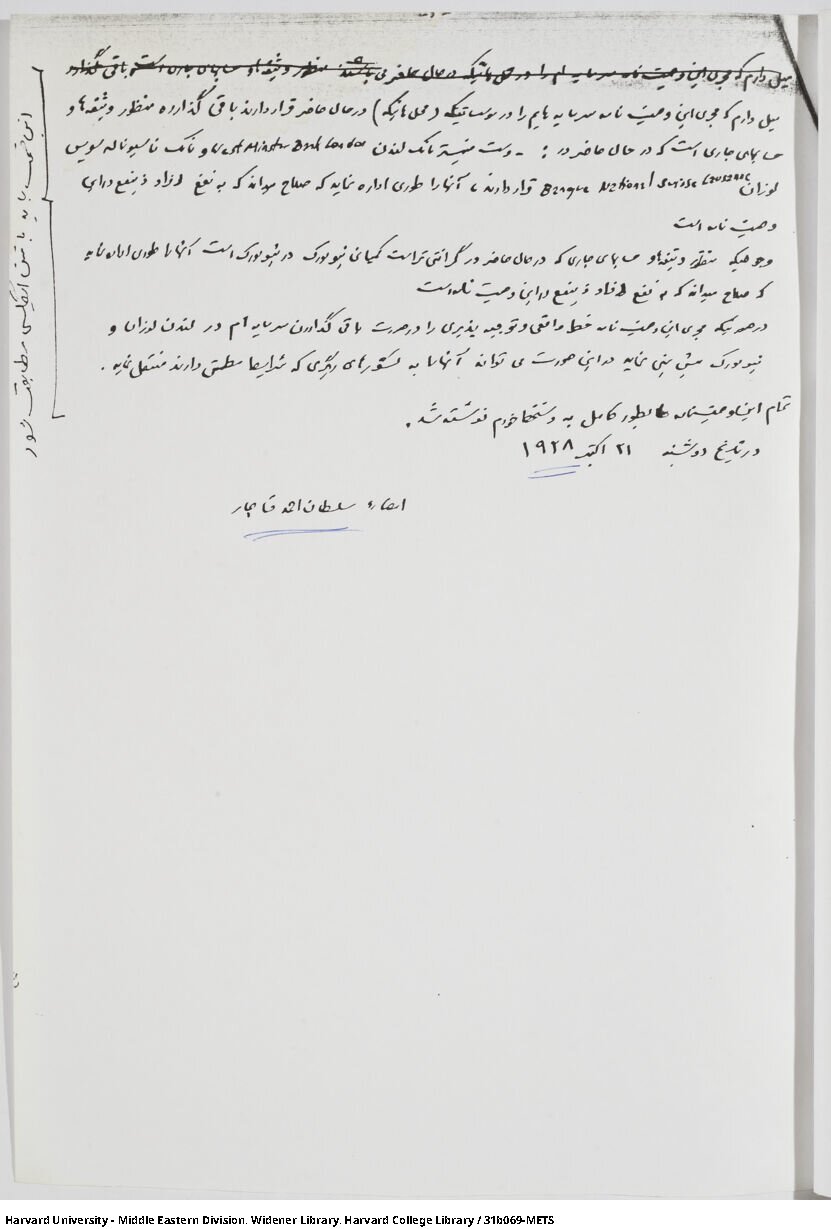 میل دارم که مجری این وصیت نامه سرمایه ام را در محل هائیکه در حال حاضر می باشند منظور وثیقه ها و حسابهای جاری است باقی گذارد
میل دارم که مجری این وصیت نامه سرمایه هایم را در موقعیتیکه (محل هائیکه) در حال حاضر قرار دارند باقی گذارده منظور وثیقه ها و
حسابهای جاری است که در حال حاضر در : - وست مینستر بانک لندن West Minster Bank London و بانک ناسیونال سویس
لوزان Banque National Suisse Lausanne قرار دارند، آنها را طوری اداره نماید که صلاح میداند که به نفع افراد ذینفع در این
وصیت نامه است
وجوهیکه منظور وثیقه ها و حسابهای جاری که در حال حاضر در گرانتی تراست کمپانی نیویورک در نیویورک است آنها را طوری اداره نماید
که صلاح میداند که به نفع افراد ذینفع در این وصیت نامه است
در صورتیکه مجری این وصیت نامه خطر واقعی و توجیه پذیری را در صورت باقی گذاردن سرمایه ام در لندن لوزان و
نیویورک پیش بینی نماید در این صورت می تواند آنها را به کشورهای دیگری که شرایط مطمئنی دارند منتقل نماید.
تمام این وصیتنامه بطور کامل به دستخط خودم نوشته شد.
در تاریخ دوشنبه ۲۱ اکتبر ۱۹۲۸
امضاء سلطان احمد قاجار
این قسمت باید با متن انگلیسی مطابقت شود
Harvard University - Middle Eastern Division, Widener Library, Harvard College Library / 31b069-METS